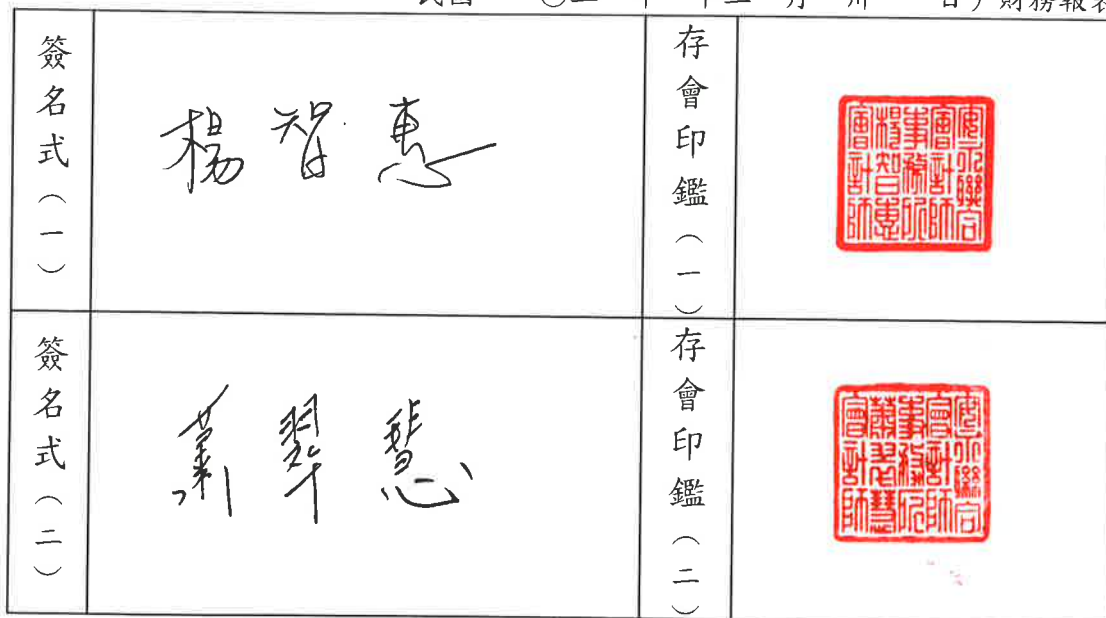 日）財務報表
簽名式（一）
楊智惠
存會印鑑（一）
安永聯合
會計師
事務所
楊智惠
會計師
簽名式（二）
蕭翠慧
存會印鑑（二）
安永聯合
會計師
事務所
蕭翠慧
會計師